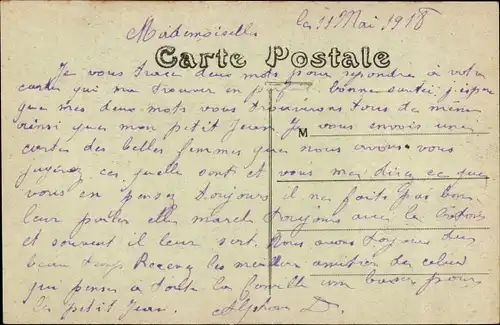 Mademoiselle le 11 Mai 1918
Carte Postale
Je vous trace deux mots pour repondre à votre
cartes qui ma trouver en bonne santé j'espere
que mes deux mots vous trouverons tous de même
ainsi que mon petit Jean. Je vous envois une
M
cartes des belles femmes que nous avons vous
jugerez ces quelle sont et vous me direz ce que
vous en penser Toujours il ne faits pas bon
leur parler elle marche toujours avec le
et souvent il leur sert. Nous avons toujours du
beau temps Recevez les meilleur amitier de celui
qui penser à toute la famille un baiser pour
le petit Jean. Alphonse D.